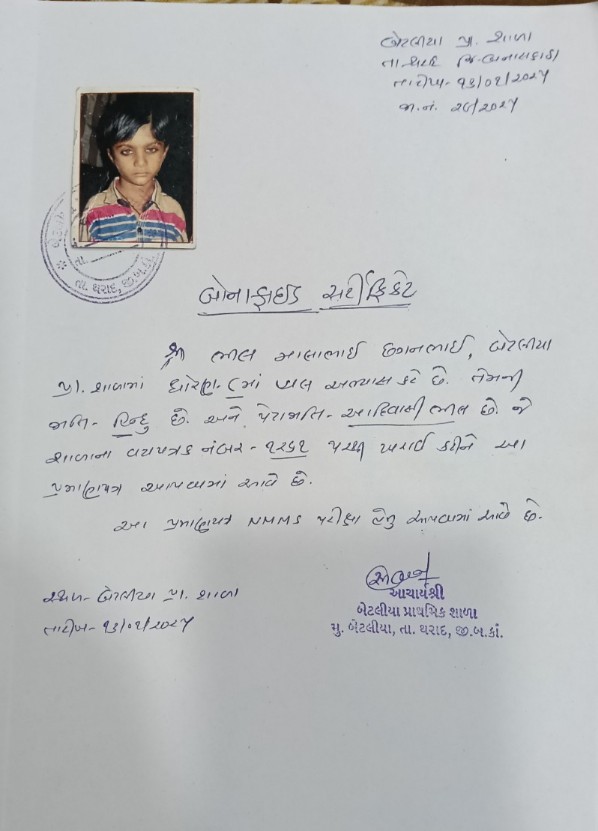 બેટલીયા પ્રા. શાળા
તા. થરાદ જિ-બનાસકાંઠા
તારીખ- ૧૩/૦૧/૨૦૨૫
જા.નં. ૨૯/૨૦૨૫
તા. થરાદ, જી.બ.કાં.
બોનાફાઇડ સર્ટીફિકેટ
શ્રી ભીલ માલાભાઈ છગનભાઈ, બેટલીયા
પ્રા. શાળામાં ધોરણ- ૮માં હાલ અભ્યાસ કરે છે. તેમની
જાતિ- હિન્દુ છે. અને પેટાજાતિ- આદિવાસી ભીલ છે. જે
શાળાના વયપત્રક નંબર- ૧૨૬૧ પરથી ખરાઈ કરીને આ
પ્રમાણપત્ર આપવામાં આવે છે.
આ પ્રમાણપત્ર NMMS પરીક્ષા હેતુ આપવામાં આવે છે.
સ્થળ- બેટલીયા પ્રા. શાળા
તારીખ- ૧૩/૦૧/૨૦૨૫
આચાર્યશ્રી
બેટલીયા પ્રાથમિક શાળા
મુ. બેટલીયા, તા. થરાદ, જી.બ.કાં.